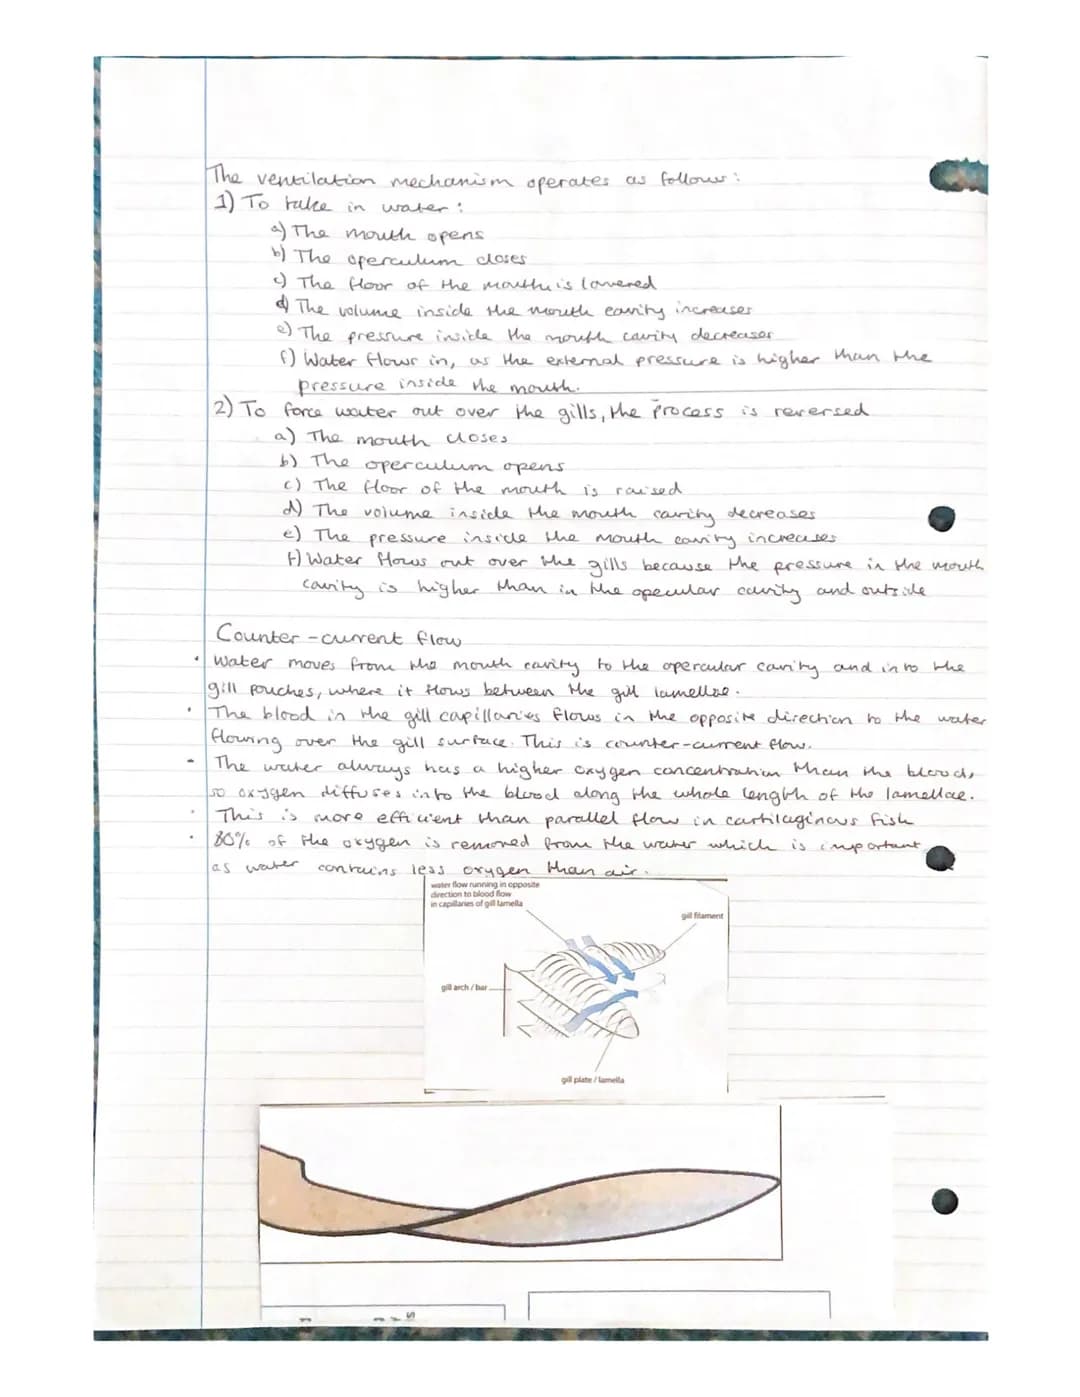 The ventilation mechanism operates as follows:
1) To take in water:
a) The mouth opens
b) The operculum closes
c) The floor of the mouth is lowered
d) The volume inside the mouth cavity increases
e) The pressure inside the mouth cavity decreases
f) Water flows in, as the external pressure is higher than the
pressure inside the mouth.
2) To force water out over the gills, the process is reversed
a) The mouth closes
b) The operculum opens
c) The floor of the mouth is raised
d) The volume inside the mouth cavity decreases
e) The pressure inside the mouth cavity increases
f) Water flows out over the gills because the pressure in the mouth
cavity is higher than in the opecular cavity and outside
Counter-current flow
• Water moves from the mouth cavity to the opercular cavity and into the
gill pouches, where it flows between the gill lamellae.
• The blood in the gill capillaries flows in the opposite direction to the water
flowing over the gill surface. This is counter-current flow.
• The water always has a higher oxygen concentration than the blood,
so oxygen diffuses into the blood along the whole length of the lamellae.
• This is more efficient than parallel flow in cartilaginous fish
• 80% of the oxygen is removed from the water which is important
as water contains less oxygen than air.
water flow running in opposite
direction to blood flow
in capillaries of gill lamella
gill filament
gill arch / bar
gill plate / lamella